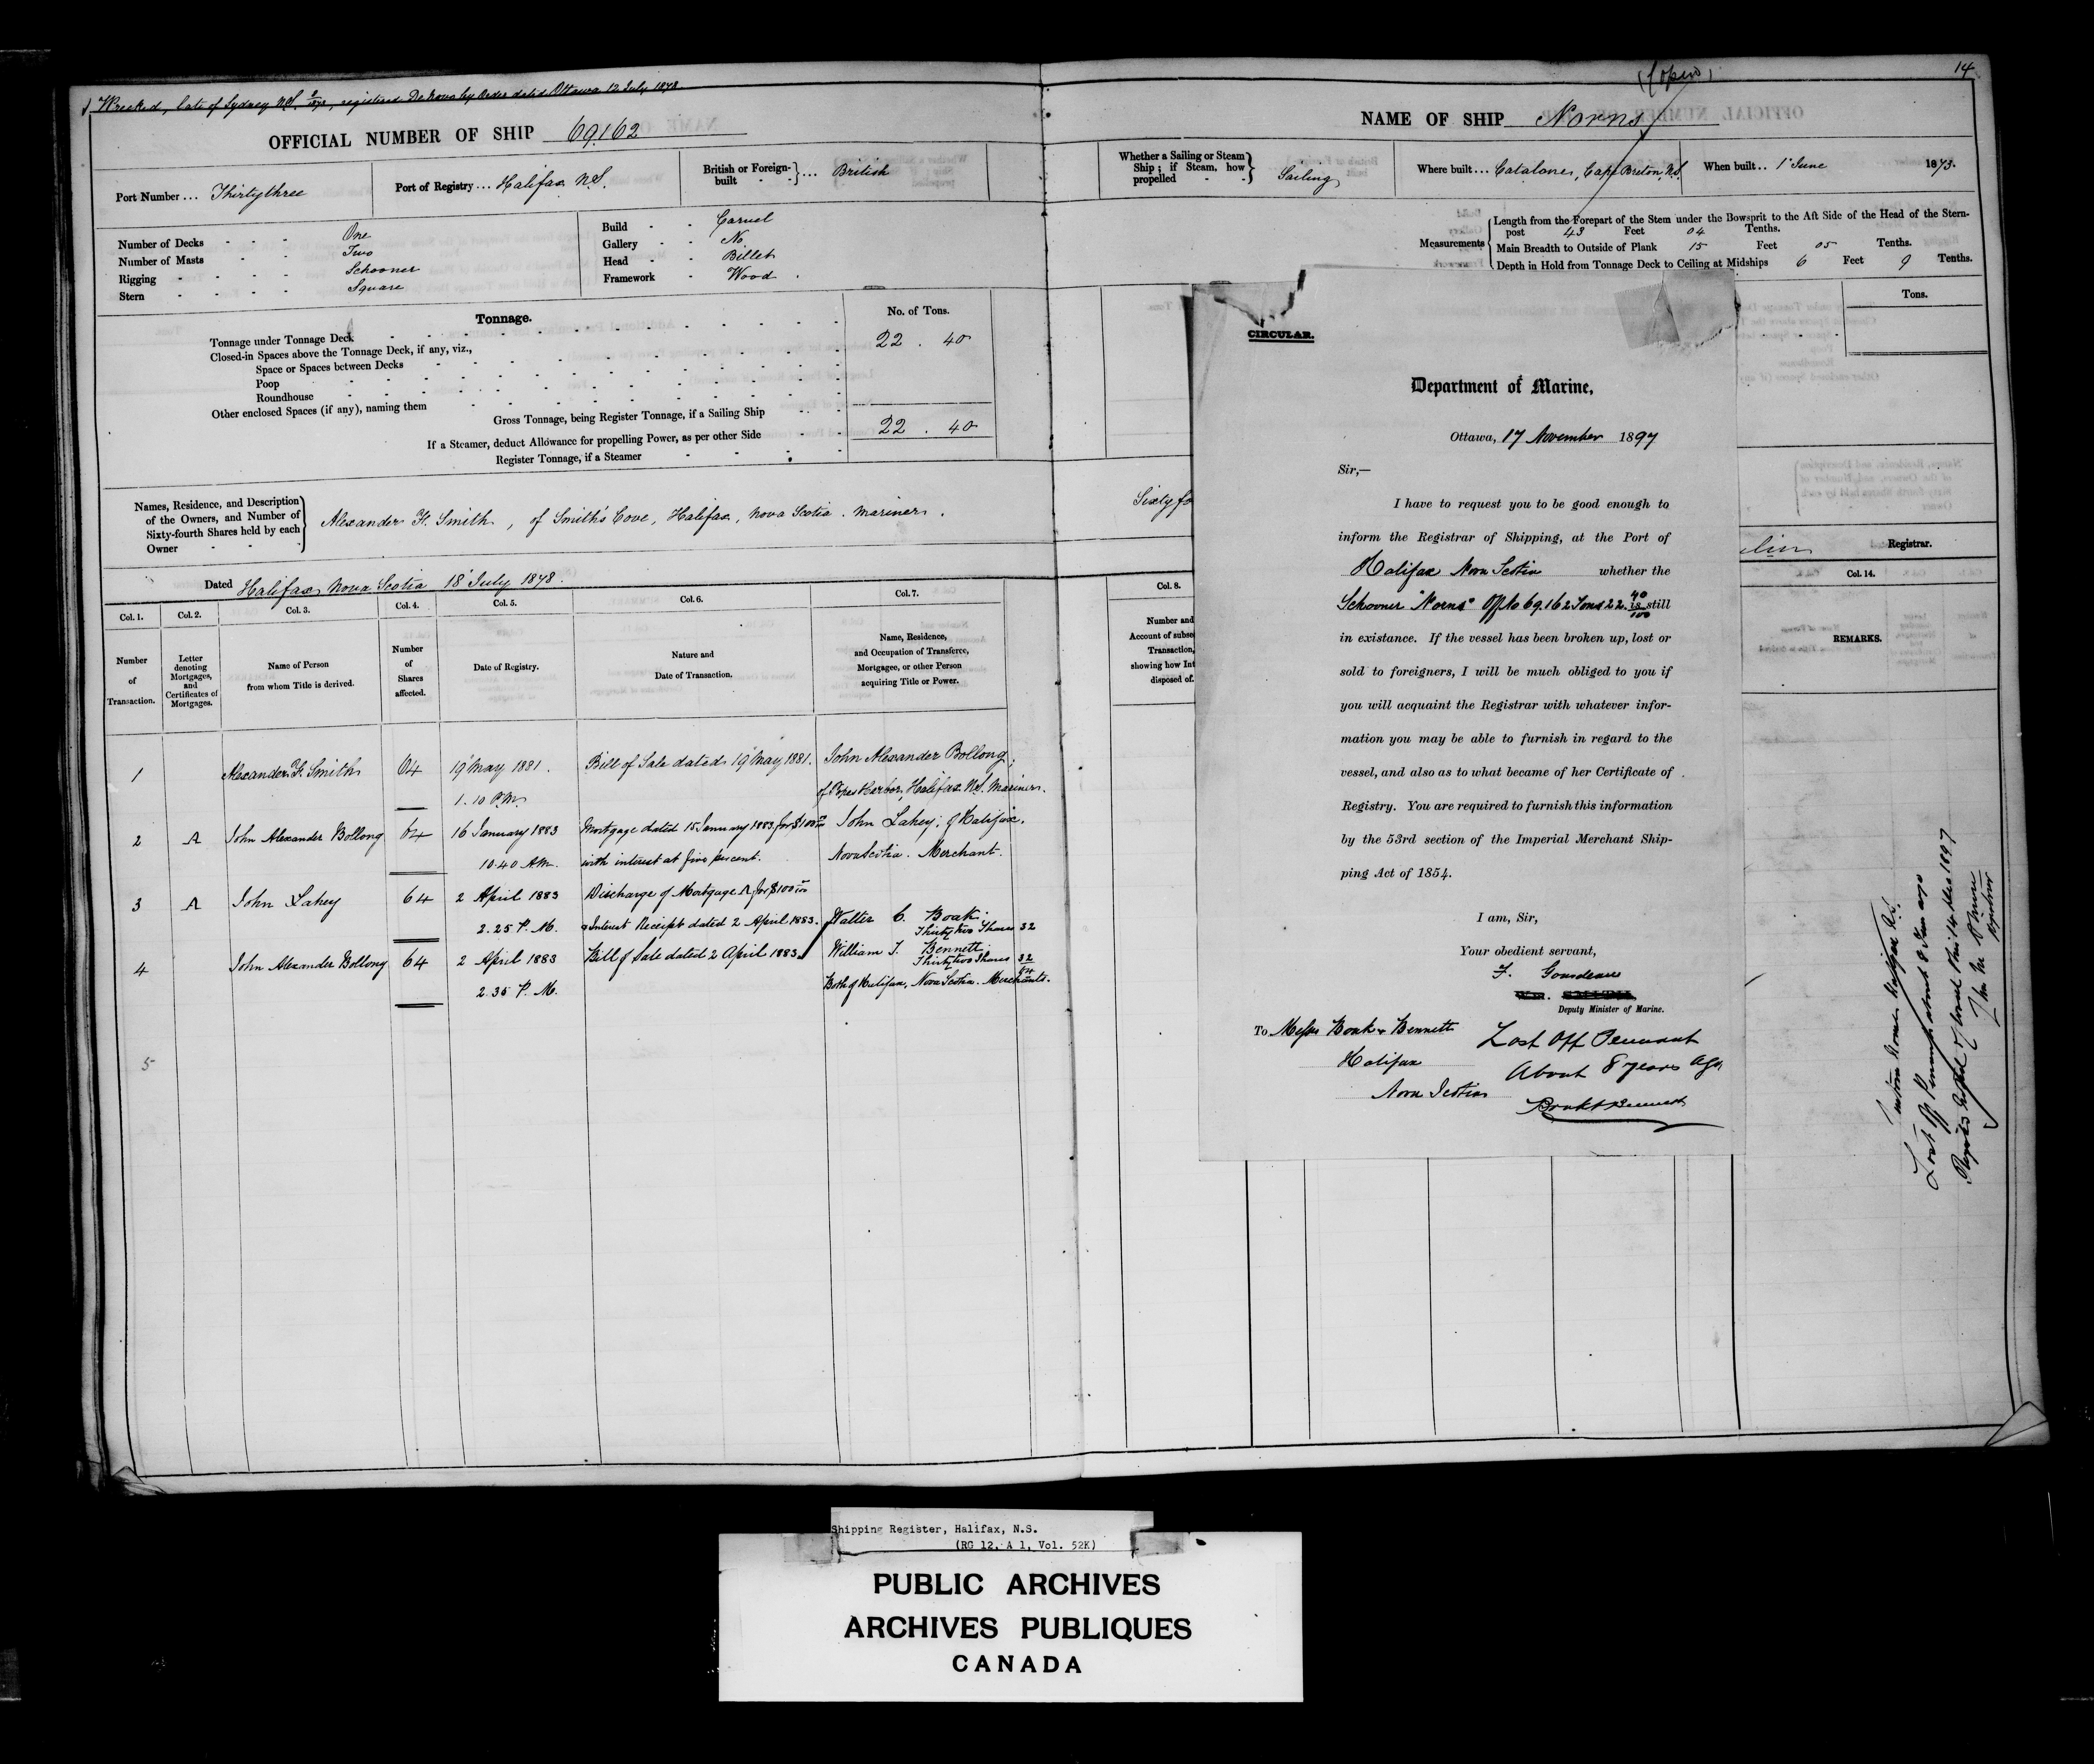 Wrecked, late of Sydney N.S. , registered De Novo by order dated Ottawa 12 July 1878.
OFFICIAL NUMBER OF SHIP 69.162
Port Number ... Thirtythree
Port of Registry ... Halifax N.S.
British or Foreign-built ... British
Number of Decks One
Number of Masts Two
Rigging Schooner
Stern Square
Build Carvel
Gallery No
Head Billet
Framework Wood
Tonnage.
No. of Tons.
Tonnage under Tonnage Deck 22 . 40
Closed-in Spaces above the Tonnage Deck, if any, viz.,
Space or Spaces between Decks
Poop
Roundhouse
Other enclosed Spaces (if any), naming them
Gross Tonnage, being Register Tonnage, if a Sailing Ship 22 . 40
If a Steamer, deduct Allowance for propelling Power, as per other Side
Register Tonnage, if a Steamer
Names, Residence, and Description of the Owners, and Number of Sixty-fourth Shares held by each Owner
Alexander F. Smith, of Smith's Cove, Halifax, Nova Scotia. Mariner.
Dated Halifax Nova Scotia 18 July 1878.
Col. 1. Col. 2. Col. 3. Col. 4. Col. 5. Col. 6. Col. 7.
Number of Transaction.
Letter denoting Mortgages, and Certificates of Mortgages.
Name of Person from whom Title is derived.
Number of Shares affected.
Date of Registry.
Nature and Date of Transaction.
Name, Residence, and Occupation of Transferee, Mortgagee, or other Person acquiring Title or Power.
1 Alexander F. Smith 64 19 May 1881. Bill of Sale dated 19 May 1881. John Alexander Bollong,
1.10 P.M. of Popes Harbor, Halifax N.S. Mariner.
2 A John Alexander Bollong 64 16 January 1883 Mortgage dated 15 January 1883 for $100 John Lahey, of Halifax.
10.40 A.M. with interest at five percent. Nova Scotia. Merchant.
3 A John Lahey 64 2 April 1883 Discharge of Mortgage A for $100
2.25 P.M. & Interest Receipt dated 2 April 1883. Walter C. Boak. Thirtytwo Shares 32
4 John Alexander Bollong 64 2 April 1883 Bill of Sale dated 2 April 1883 William J. Bennett. Thirtytwo Shares 32
2.35 P.M. Both of Halifax, Nova Scotia. Merchants. 64
5
14
NAME OF SHIP Norns
Whether a Sailing or Steam Ship; if Steam, how propelled Sailing
Where built ... Catalone, Cape Breton, N.S
When built ... 1 June 1873.
Measurements
Length from the Forepart of the Stem under the Bowsprit to the Aft Side of the Head of the Stern-
post 43 Feet 04 Tenths.
Main Breadth to Outside of Plank 15 Feet 05 Tenths.
Depth in Hold from Tonnage Deck to Ceiling at Midships 6 Feet 9 Tenths.
Tons.
Sixty fo
Registrar.
Col. 8.
Col. 14.
Number and
Account of subse
Transaction,
showing how Int
disposed of.
REMARKS.
CIRCULAR.
Department of Marine,
Ottawa, 17 November 1897
Sir,—
I have to request you to be good enough to
inform the Registrar of Shipping, at the Port of
Halifax Nova Scotia whether the
Schooner "Norns" Off No 69.162 Tons 22.40/100 is still
in existance. If the vessel has been broken up, lost or
sold to foreigners, I will be much obliged to you if
you will acquaint the Registrar with whatever infor-
mation you may be able to furnish in regard to the
vessel, and also as to what became of her Certificate of
Registry. You are required to furnish this information
by the 53rd section of the Imperial Merchant Ship-
ping Act of 1854.
I am, Sir,
Your obedient servant,
F. Gourdeau
Wm. SMITH,
Deputy Minister of Marine.
To Messrs Boak & Bennett
Halifax
Nova Scotia
Lost Off Pennant
About 8 years ago
Boak & Bennett
Lost off Pennant about 8 years ago
this 14 Dec 1897
Registrar
Shipping Register, Halifax, N.S.
(RG 12, A 1, Vol. 52K)
PUBLIC ARCHIVES
ARCHIVES PUBLIQUES
CANADA